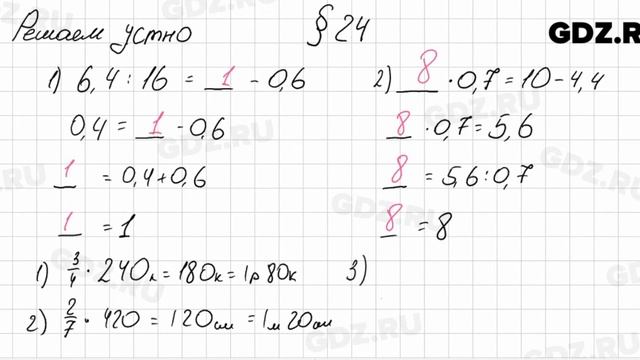 Решаем устно § 24 GDZ.RU
1) 6,4 : 16 = 1 - 0,6
0,4 = 1 - 0,6
1 = 0,4+0,6
1 = 1
2) 8 · 0,7 = 10 - 4,4
8 · 0,7 = 5,6
8 = 5,6 : 0,7
8 = 8
1) 3/4 · 240к = 180к = 1р 80к 3)
2) 2/7 · 420 = 120см = 1м 20см